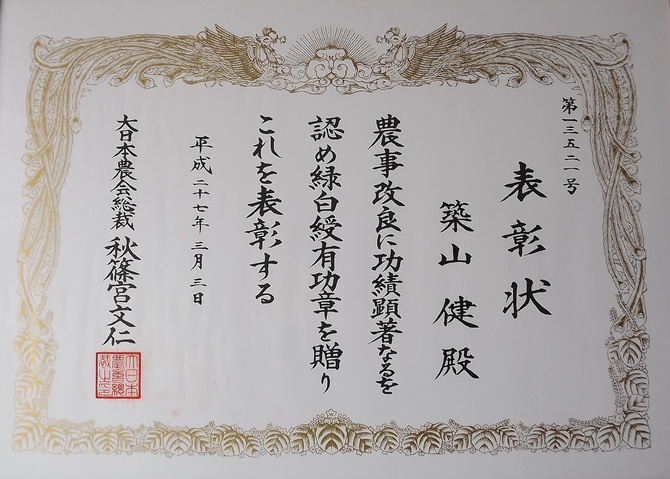 第一三五二一号
表彰状
築山健殿
農事改良に功績顕著なるを
認め緑白綬有功章を贈り
これを表彰する
平成二十七年三月三日
大日本農会総裁 秋篠宮文仁
大日本
農会総
裁之印